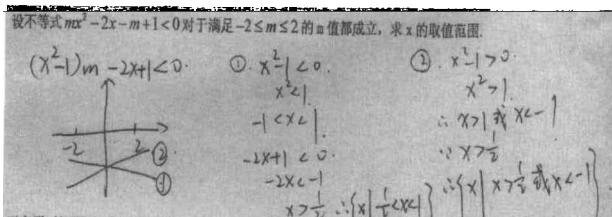 设不等式mx²-2x-m+1<0对于满足-2≤m≤2的m值都成立，求x的取值范围.
(x²-1)m -2x+1<0.
-2 2 ② ①
①. x²-1<0.
x²<1.
-1<x<1.
-2x+1<0.
-2x<-1
x>1/2 ∴{x|1/2<x<1}
②. x²-1>0.
x²>1.
∴ x>1或 x<-1
∵ x>1/2
∴{x|x>1/2或x<-1}